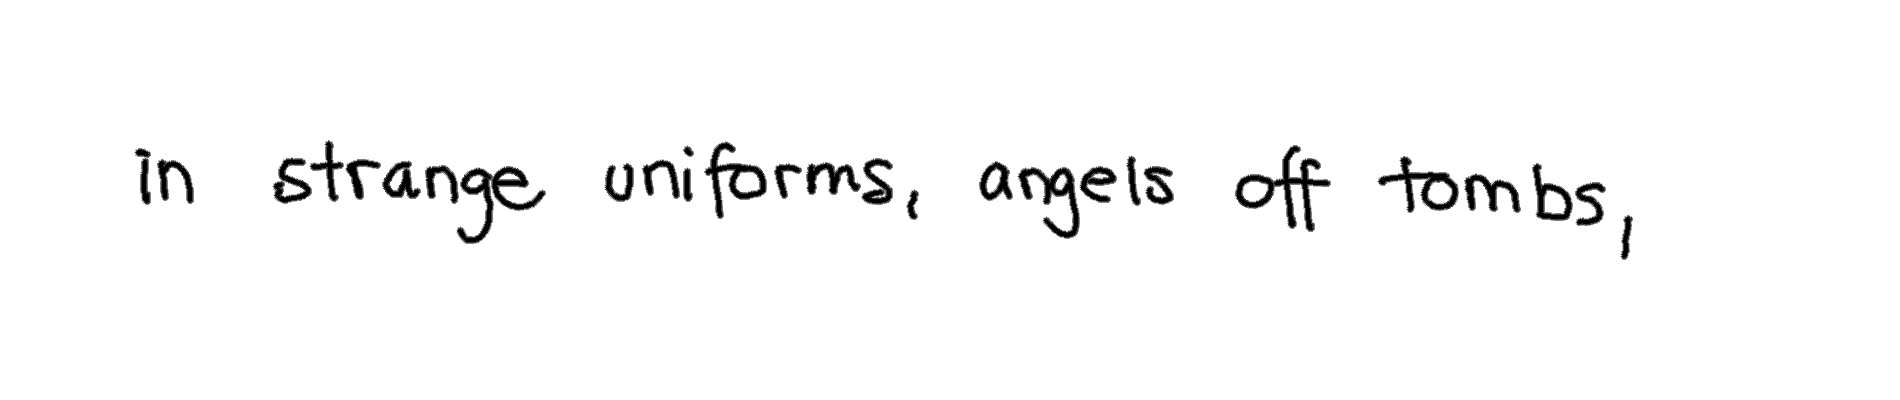 in strange uniforms, angels off tombs,